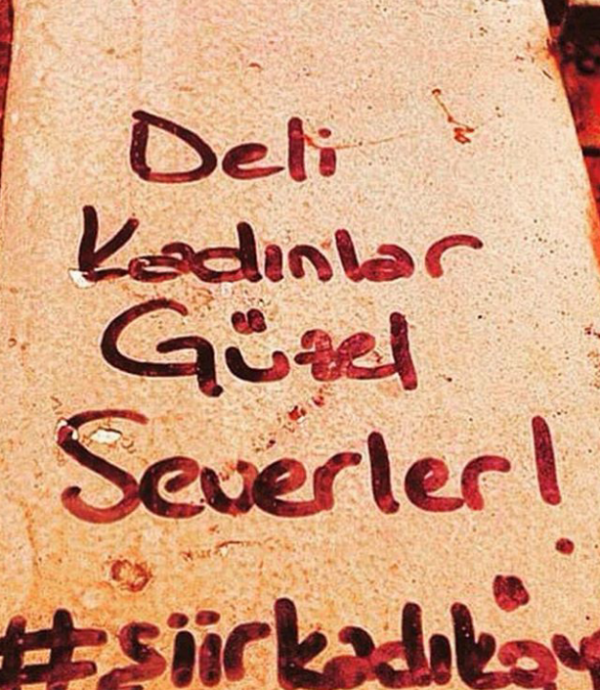 Deli
Kadınlar
Güzel
Severler!
#şiirkadıköy